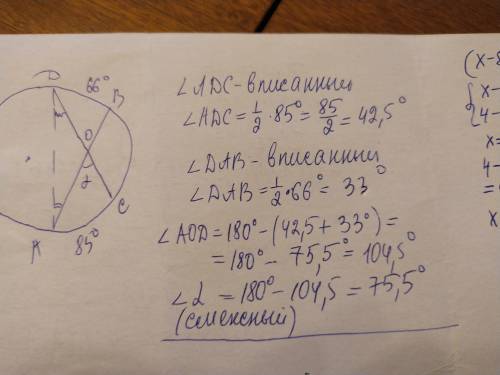 D
66°
B
O
α
C
A
85°
∠ADC - вписанный
∠ADC = 1/2 · 85° = 85/2 = 42,5°
∠DAB - вписанный
∠DAB = 1/2 · 66° = 33°
∠AOD = 180° - (42,5 + 33°) =
= 180° - 75,5° = 104,5°
∠α = 180° - 104,5 = 75,5°
(смежный)
(x-8
{x-
4-
x=
4-
=
x